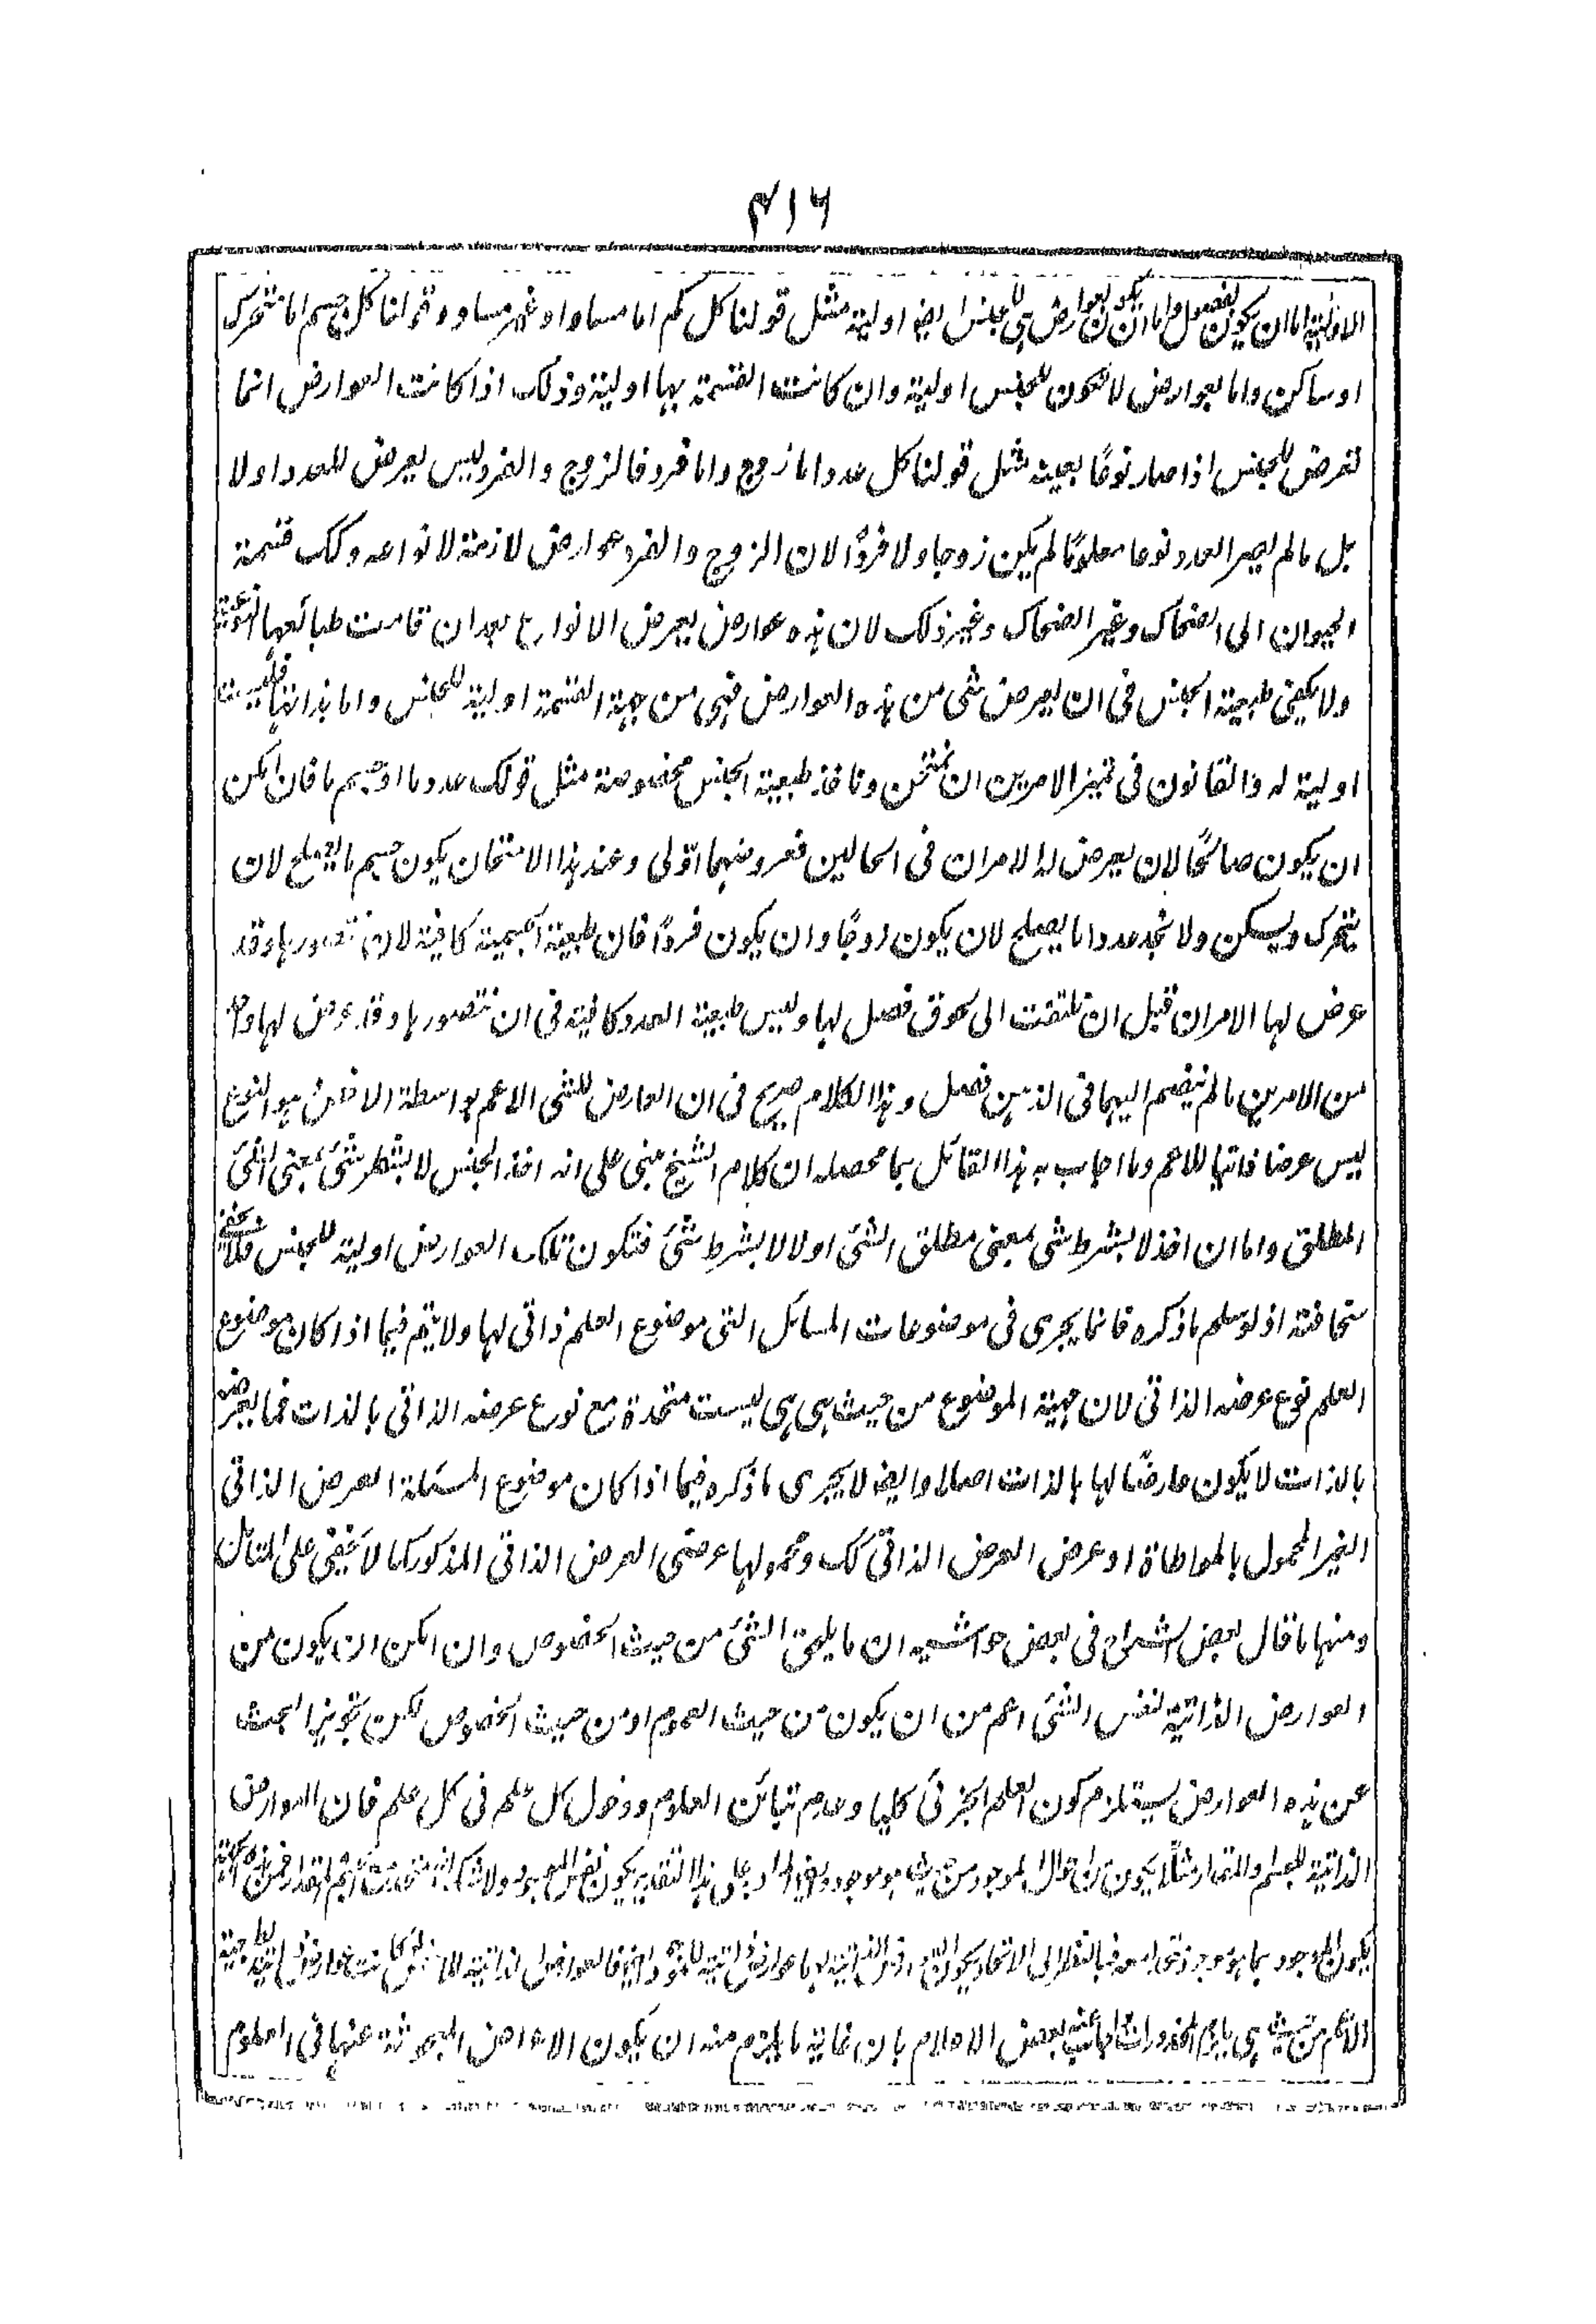 ۴۱۶
الاولية اما ان يكون بفصول واما ان يكون بعوارض هي للجنس ايضا اولية مثل قولنا كل كم اما مساو او غير مساو وقولنا كل جسم اما متحرك
او ساكن واما بعوارض لا تكون للجنس اولية وان كانت القسمة بها اولية وذلك اذا كانت العوارض انما
تعرض للجنس اذا صار نوعًا بعينه مثل قولنا كل عدد اما زوج واما فرد فالزوج والفرد ليس يعرض للعدد اولا
بل ما لم يصر العدد نوعا معلومًا لم يكن زوجا ولا فردًا لان الزوج والفرد عوارض لازمة لانواعه وكك قسمة
الحيوان الى الضحاك وغير الضحاك وغير ذلك لان هذه عوارض يعرض الانواع بعد ان قامت طبائعها النوعية
ولا يكفي طبيعة الجنس في ان يعرض شي من هذه العوارض فهي من جهة القسمة اولية للجنس واما بذاتها فليست
اولية له والقانون في تميز الامرين ان تمتحن وتاخذ طبيعة الجنس مخصوصة مثل قولك عدد ما او جسم ما فان امكن
ان يكون صالحًا لان يعرض له الامران في الحالين فعروضهما اولى وعند هذا الامتحان يكون جسم ما يصلح لان
يتحرك ويسكن ولا تجد عددا ما يصلح لان يكون زوجًا وان يكون فردًا فان طبيعة الجسمية كافية لان تتصورها وقد
عرض لها الامران قبل ان تلتفت الى لحوق فصل لها وليس طبيعة العدد كافية في ان تتصورها وقد عرض لها واحد
من الامرين ما لم ينضم اليها في الذهن فصل وهذا الكلام صريح في ان العارض للشي الاعم بواسطة الاخص هو النوع
ليس عرضا ذاتيا للاعم وما اجاب به هذا القائل بما محصله ان كلام الشيخ مبني على انه اخذ الجنس لا بشرط شئ بمعنى الشئ
المطلق واما ان اخذ لا بشرط شي بمعنى مطلق الشئ اولا لا بشرط شئ فتكون تلك العوارض اولية للجنس فلا يخفى
سخافته اذ لو سلم ما ذكره فانما يجري في موضوعات المسائل التي موضوع العلم ذاتي لها ولا يتم فيما اذا كان موضوع
العلم نوع عرضه الذاتي لان جهة الموضوع من حيث هي هي ليست متحدة مع نوع عرضه الذاتي بالذات فما يعرضه
بالذات لا يكون عارضًا لها بالذات اصلا وايضا لا يجري ما ذكره فيما اذا كان موضوع المسئلة العرض الذاتي
الغير المحمول بالمواطاة او عرض العرض الذاتي كك ومحمولها عرضي العرض الذاتي المذكور كما لا يخفى على المتامل
ومنها ما قال بعض الشراح في بعض حواشيه ان ما يلحق الشئ من حيث الخصوص وان امكن ان يكون من
العوارض الذاتية لنفس الشئ اعم من ان يكون من حيث العموم او من حيث الخصوص لكن تجويز البحث
عن هذه العوارض يستلزم كون العلم الجزئي كليا وعدم تبائن العلوم ودخول كل علم في كل علم فان العوارض
الذاتية للجسم والمقدار مثلا يكون من احوال الموجود من حيث هو موجود
يكون الموجود بما هو موجود
الاعم من حيث هي يلزم المحذورات واجاب عنه بعض الاعلام بان غاية ما يلزم منه ان يكون الاعراض المبحوثة عنها في العلوم